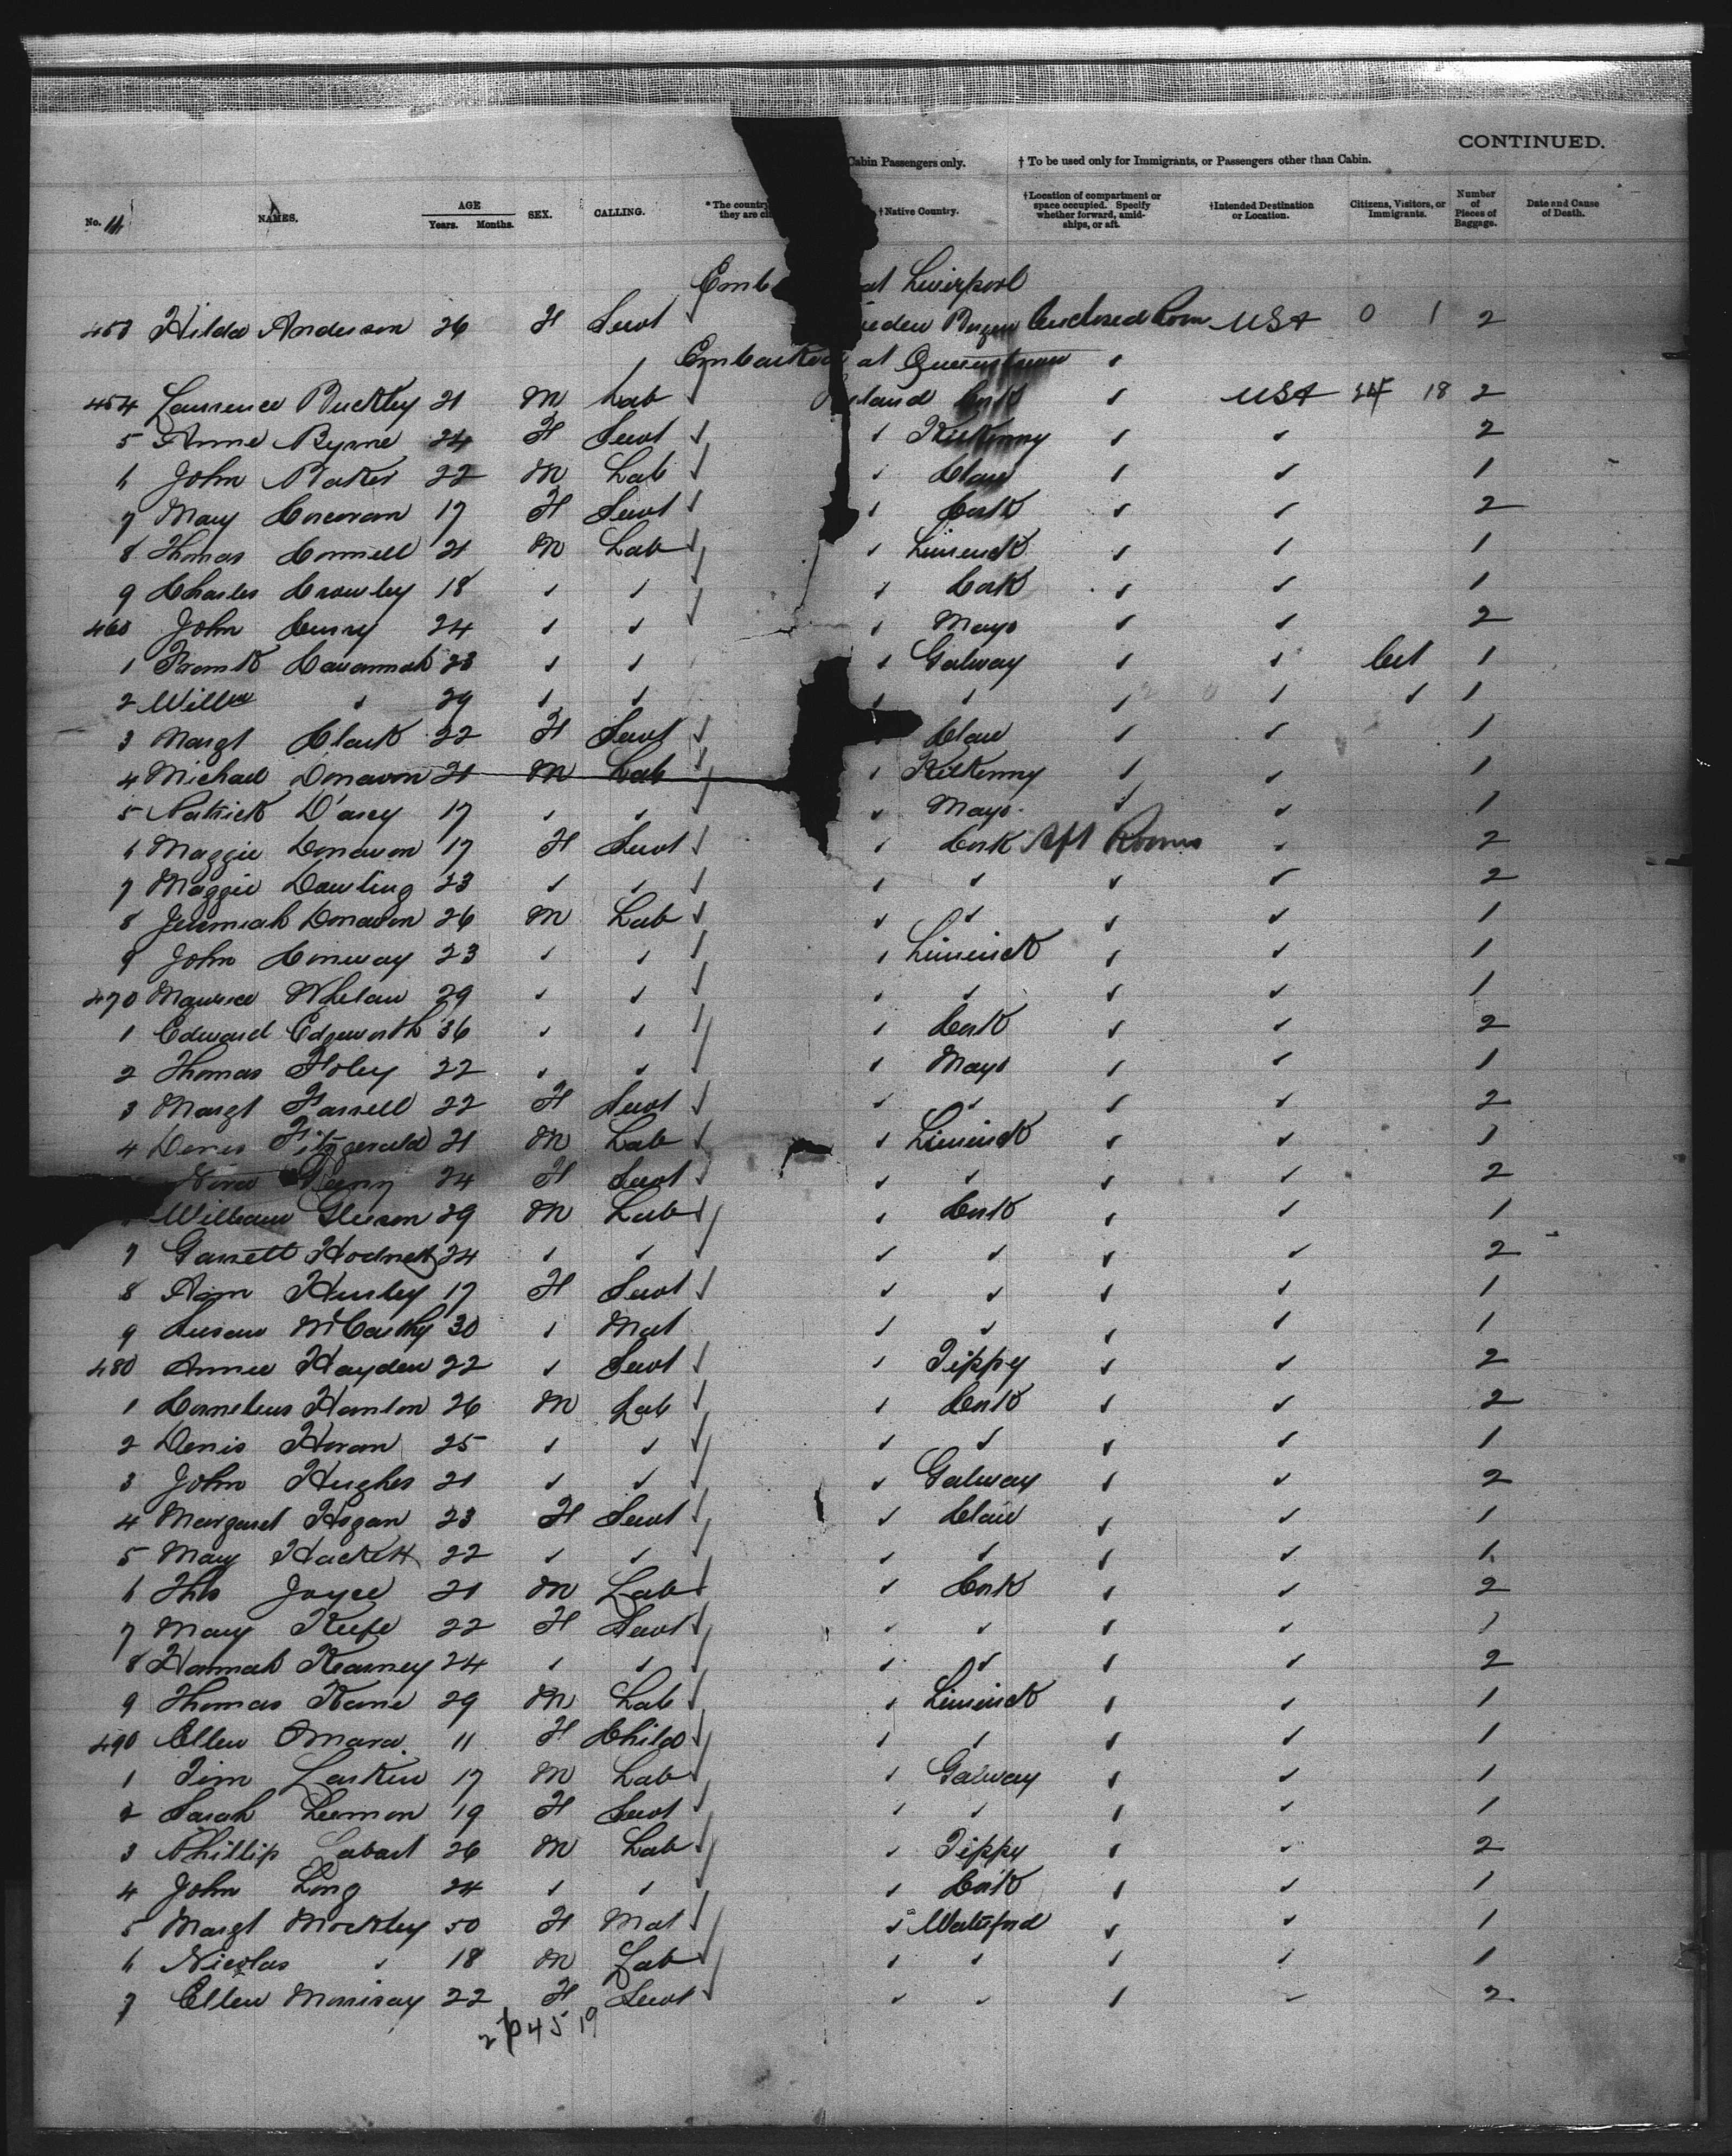 CONTINUED.
Cabin Passengers only. † To be used only for Immigrants, or Passengers other than Cabin.
No. NAMES. AGE Years. Months. SEX. CALLING. * The country they are †Native Country. †Location of compartment or space occupied. Specify whether forward, amidships, or aft. †Intended Destination or Location. Citizens, Visitors, or Immigrants. Number of Pieces of Baggage. Date and Cause of Death.
Emb at Liverpool
453 Hilda Anderson 26 F Servt ✓ eden Enclosed Room USA 0 1 2
Embarked at Queenstown ✓
454 Laurence Buckley 21 M Lab ✓ Ireland Cork ✓ USA 18 2
5 Anne Byrne 24 F Servt ✓ ✓ Kilkenny ✓ ✓ 2
6 John Baker 22 M Lab ✓ ✓ Clare ✓ ✓ 1
7 Mary Corcoran 17 F Servt ✓ ✓ Cork ✓ ✓ 2
8 Thomas Connell 21 M Lab ✓ ✓ Limerick ✓ ✓ 1
9 Charles Crowley 18 ✓ ✓ ✓ ✓ Cork ✓ ✓ 1
460 John Curry 24 ✓ ✓ ✓ ✓ Mayo ✓ ✓ 2
1 Frank Cavannah 23 ✓ ✓ ✓ Galway ✓ ✓ Cit 1
2 Willm ✓ 29 ✓ ✓ ✓ ✓ ✓ ✓ ✓ 1
3 Margt Clark 22 F Servt ✓ ✓ Clare ✓ ✓ 1
4 Michael Donavon 21 M Lab ✓ ✓ Kilkenny ✓ ✓ 1
5 Patrick D'arcy 17 ✓ ✓ ✓ ✓ Mayo ✓ ✓ 1
6 Maggie Donavon 17 F Servt ✓ ✓ Cork Aft Rooms ✓ 2
7 Maggie Dawling 23 ✓ ✓ ✓ ✓ ✓ ✓ ✓ 2
8 Jeremiah Donavon 26 M Lab ✓ ✓ ✓ ✓ ✓ 1
9 John Conway 23 ✓ ✓ ✓ ✓ Limerick ✓ ✓ 1
470 Maurice Whelan 29 ✓ ✓ ✓ ✓ ✓ ✓ ✓ 1
1 Edward Edgeworth 36 ✓ ✓ ✓ ✓ Cork ✓ ✓ 2
2 Thomas Foley 22 ✓ ✓ ✓ Mayo ✓ ✓ 1
3 Margt Farrell 22 F Servt ✓ ✓ ✓ ✓ ✓ 2
4 Denis Fitzgerald 21 M Lab ✓ ✓ Limerick ✓ ✓ 1
Nora 24 F Servt ✓ ✓ ✓ ✓ ✓ 2
William Gleeson 29 M Lab ✓ ✓ Cork ✓ ✓ 1
7 Garrett Hodnett 24 ✓ ✓ ✓ ✓ ✓ ✓ ✓ 2
8 Ann Hurley 17 F Servt ✓ ✓ ✓ ✓ ✓ 1
9 Susan McCarthy 30 ✓ Mat ✓ ✓ ✓ ✓ 1
480 Annie Hayden 22 ✓ Servt ✓ ✓ Tippy ✓ ✓ 2
1 Cornelius Hanlon 26 M Lab ✓ ✓ Cork ✓ ✓ 2
2 Denis Horan 25 ✓ ✓ ✓ ✓ ✓ ✓ ✓ 1
3 John Hughes 21 ✓ ✓ ✓ ✓ Galway ✓ ✓ 2
4 Margaret Hogan 23 F Servt ✓ ✓ Clare ✓ ✓ 1
5 Mary Hackett 22 ✓ ✓ ✓ ✓ ✓ ✓ ✓ 1
6 Thos Joyce 21 M Lab ✓ ✓ Cork ✓ ✓ 2
7 Mary Keefe 22 F Servt ✓ ✓ ✓ ✓ ✓ 1
8 Hannah Kearney 24 ✓ ✓ ✓ ✓ ✓ ✓ ✓ 2
9 Thomas Kane 29 M Lab ✓ ✓ Limerick ✓ ✓ 1
490 Ellen Omara 11 F Child ✓ ✓ ✓ ✓ ✓ 1
1 Tim Larkin 17 M Lab ✓ ✓ Galway ✓ ✓ 1
2 Sarah Leemon 19 F Servt ✓ ✓ ✓ ✓ ✓ 1
3 Phillip Labart 26 M Lab ✓ ✓ Tippy ✓ ✓ 2
4 John Long 24 ✓ ✓ ✓ ✓ Cork ✓ ✓ 1
5 Margt Mockley 50 F Mat ✓ ✓ Waterford ✓ ✓ 1
6 Nicolas ✓ 18 M Lab ✓ ✓ ✓ ✓ ✓ 1
7 Ellen Morrisay 22 F Servt ✓ ✓ ✓ ✓ ✓ 2